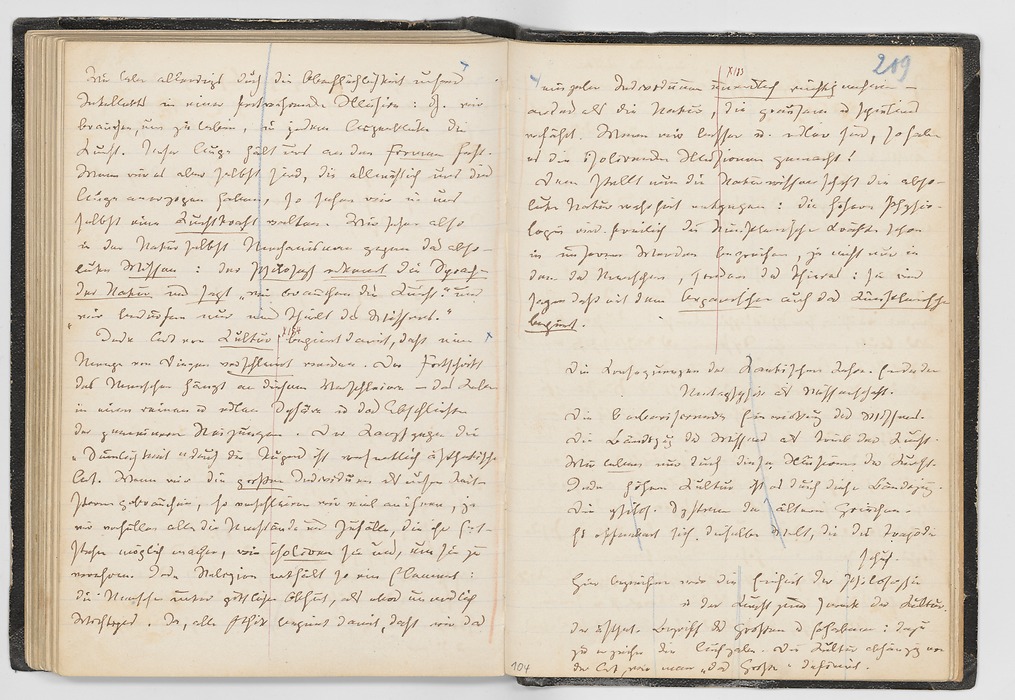 Wir leben allerdings durch die Oberflächlichkeit unseres
Intellekts in einer fortwährenden Illusion: d.h. wir
brauchen, um zu leben, in jedem Augenblicke die
Kunst. Unser Auge hält uns an den Formen fest.
Wenn wir es aber selbst sind, die allmählich uns dies
Auge anerzogen haben, so sehen wir in uns
selbst eine Kunstkraft walten. Wir sehen also
in der Natur selbst Mechanismen gegen das abso-
lute Wissen: der Philosoph erkennt die Sprache
der Natur und sagt „wir brauchen die Kunst“ und
„wir bedürfen nur eines Theils des Wissens.“
Jede Art von Kultur beginnt damit, daß eine
Menge von Dingen verschleiert werden. Der Fortschritt
des Menschen hängt an diesem Verschleiern — das Leben
in einer reinen u edlen Sphäre u das Abschließen
der gemeineren Reizungen. Der Kampf gegen die
„Sinnlichkeit“ durch die Tugend ist wesentlich ästhetischer
Art. Wenn wir die großen Individuen als unsre Leit-
sterne gebrauchen, so verschleiern wir viel an ihnen, ja
wir verhüllen alle die Umstände und Zufälle, die ihr Ent-
stehen möglich machen, wir isoliren sie uns, um sie zu
verehren. Jede Religion enthält so ein Element:
die Menschen unter göttlicher Obhut, als etwas unendlich
Wichtiges. Ja, alle Ethik beginnt damit, daß wir das
104
209
einzelne Individuum unendlich wichtig nehmen —
anders als die Natur, die grausam u spielend
verfährt. Wenn wir besser u. edler sind, so haben
es die isolirenden Illusionen gemacht!
Dem stellt nun die Naturwissenschaft die abso-
lute Naturwahrheit entgegen: die höhere Physio-
logie wird freilich die künstlerischen Kräfte schon
in unserem Werden begreifen, ja nicht nur in
dem des Menschen, sondern des Thieres: sie wird
sagen daß mit dem Organischen auch das Künstlerische
beginnt.
Die Consequenzen der Kantischen Lehre. Ende der
Metaphysik als Wissenschaft.
Die barbarisirende Einwirkung des Wissens.
Die Bändigung des Wissens als Trieb der Kunst.
Wir leben nur durch diese Illusionen der Kunst.
Jede höhere Kultur ist es durch diese Bändigung.
Die philos. Systeme der älteren Griechen.
Es offenbart sich dieselbe Welt, die die Tragödie
schuf.
Hier begreifen wir die Einheit der Philosophie
u der Kunst zum Zweck der Kultur.
Der ästhet. Begriff des Großen u Erhabenen: dazu
zu erziehen die Aufgabe. Die Kultur abhängig von
der Art, wie man „das Große“ definirt.